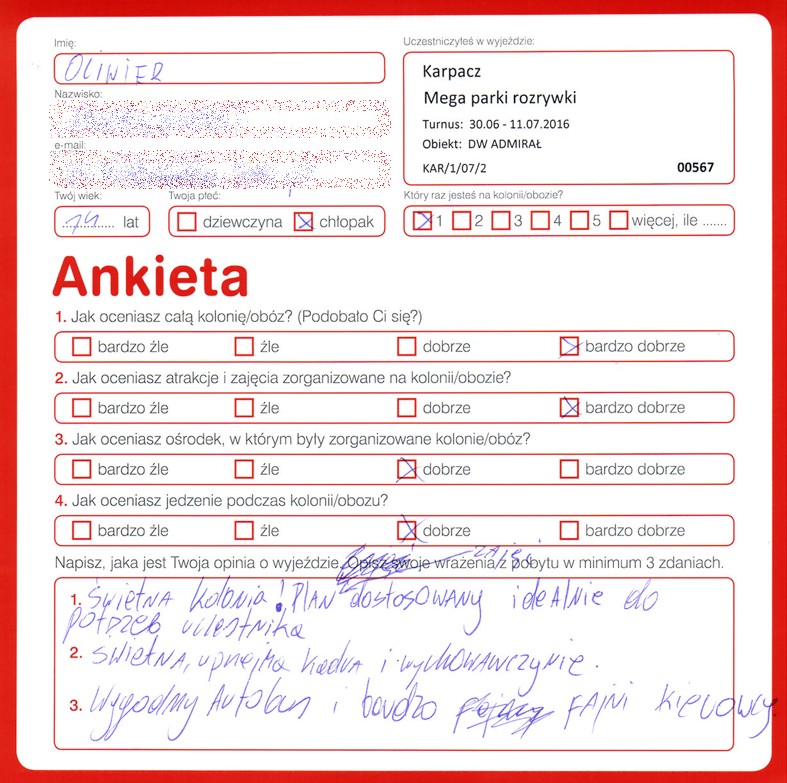 Imię:
OLIWIER
Uczestniczyłeś w wyjeździe:
Karpacz
Mega parki rozrywki
Turnus: 30.06 - 11.07.2016
Obiekt: DW ADMIRAŁ
KAR/1/07/2 00567
Nazwisko:
e-mail:
Twój wiek:
14 lat
Twoja płeć:
dziewczyna chłopak
Który raz jesteś na kolonii/obozie?
1 2 3 4 5 więcej, ile .......
Ankieta
1. Jak oceniasz całą kolonię/obóz? (Podobało Ci się?)
bardzo źle źle dobrze bardzo dobrze
2. Jak oceniasz atrakcje i zajęcia zorganizowane na kolonii/obozie?
bardzo źle źle dobrze bardzo dobrze
3. Jak oceniasz ośrodek, w którym były zorganizowane kolonie/obóz?
bardzo źle źle dobrze bardzo dobrze
4. Jak oceniasz jedzenie podczas kolonii/obozu?
bardzo źle źle dobrze bardzo dobrze
Napisz, jaka jest Twoja opinia o wyjeździe. Opisz swoje wrażenia z pobytu w minimum 3 zdaniach.
zajęć
1. Świetna kolonia! Plan dostosowany idealnie do
potrzeb uczestnika
2. Świetna, uprzejma kadra i wychowawczynie.
3. Wygodny Autobus i bardzo FAJNI kierowcy.